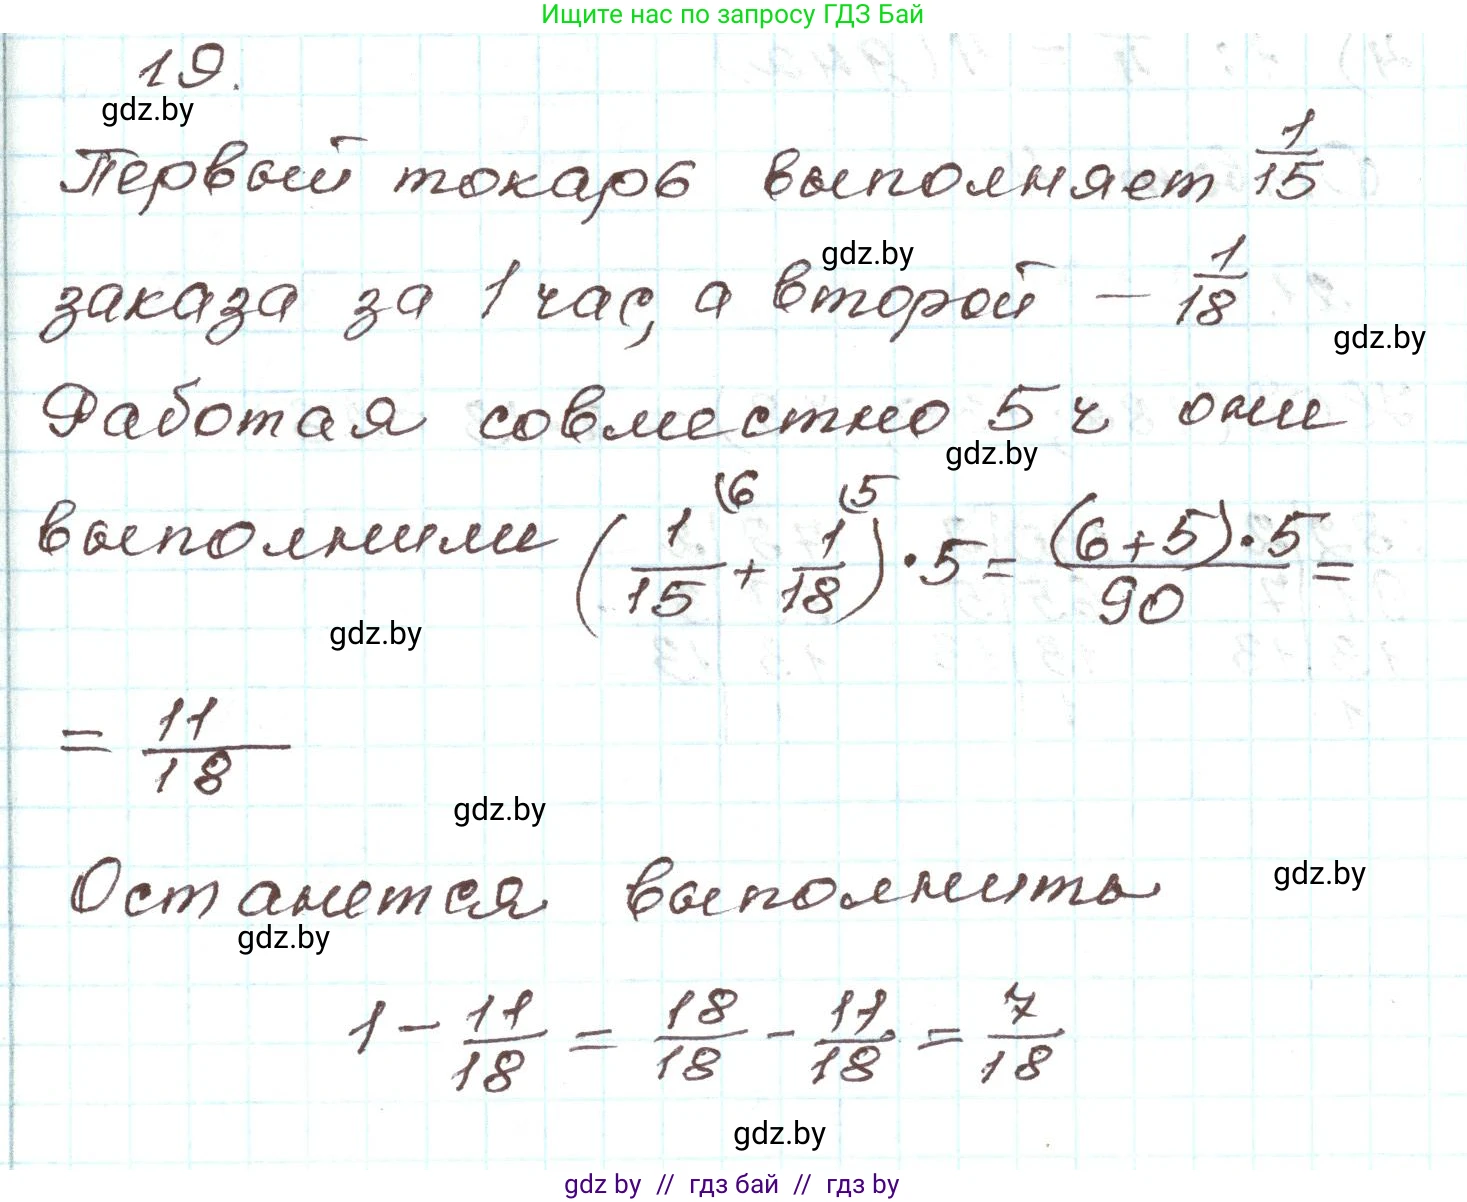 Ищите нас по запросу ГДЗ Бай
19.
gdz.by
Первый токарь выполняет 1/15
gdz.by
заказа за 1 час, а второй — 1/18
gdz.by
Работая совместно 5 ч они
gdz.by
выполнили (1/15 (6 + 1/18 (5) · 5 = (6+5)·5/90 =
gdz.by
= 11/18
gdz.by
Останется выполнить
gdz.by
gdz.by
1 - 11/18 = 18/18 - 11/18 = 7/18
gdz.by
gdz by // гдз бай // гдз by